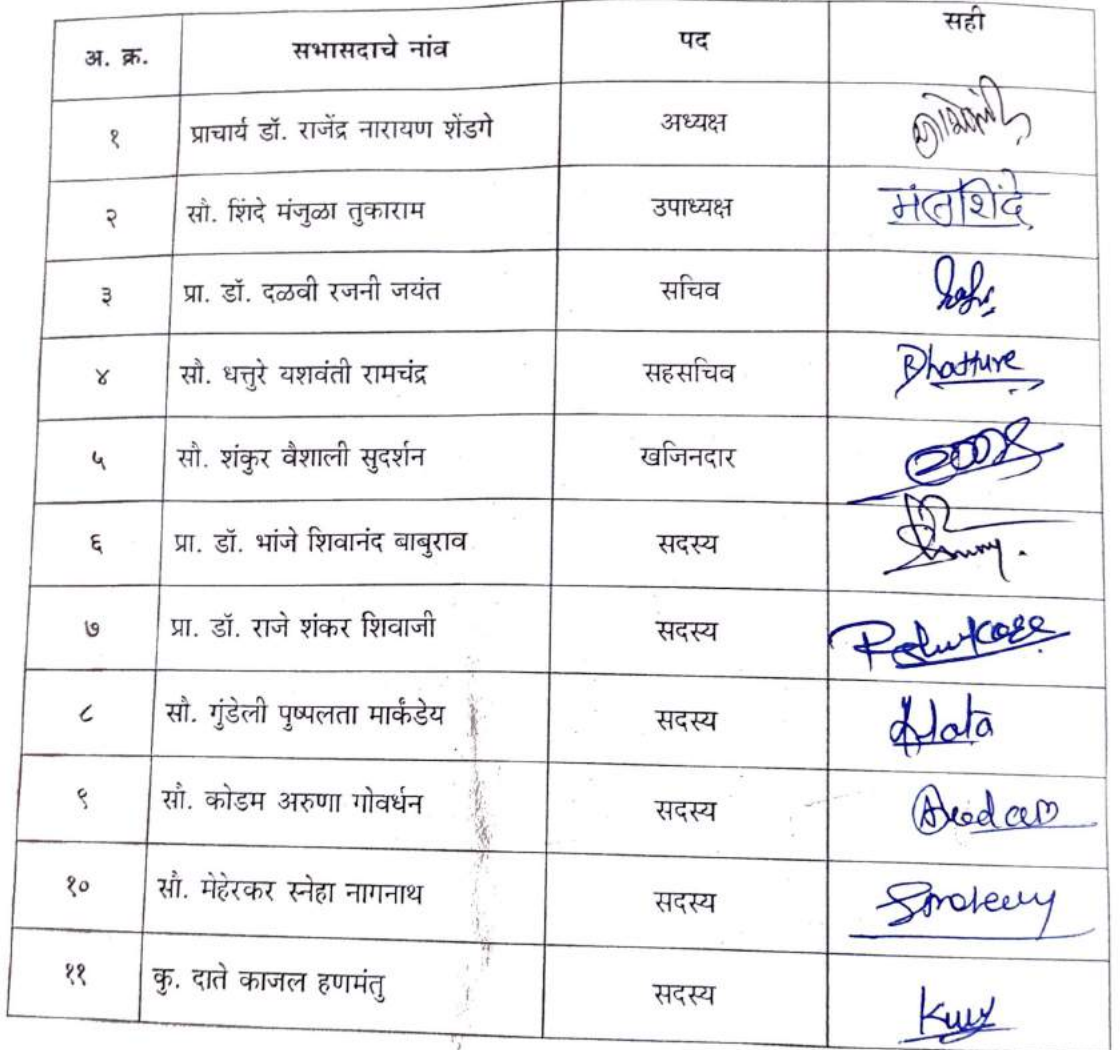 अ. क्र. सभासदाचे नांव पद सही
१ प्राचार्य डॉ. राजेंद्र नारायण शेंडगे अध्यक्ष
२ सौ. शिंदे मंजुळा तुकाराम उपाध्यक्ष
३ प्रा. डॉ. दळवी रजनी जयंत सचिव
४ सौ. धत्तुरे यशवंती रामचंद्र सहसचिव Dhatture
५ सौ. शंकुर वैशाली सुदर्शन खजिनदार
६ प्रा. डॉ. भांजे शिवानंद बाबुराव सदस्य
७ प्रा. डॉ. राजे शंकर शिवाजी सदस्य
८ सौ. गुंडेली पुष्पलता मार्कंडेय सदस्य
९ सौ. कोडम अरुणा गोवर्धन सदस्य
१० सौ. मेहेरकर स्नेहा नागनाथ सदस्य
११ कु. दाते काजल हणमंतु सदस्य